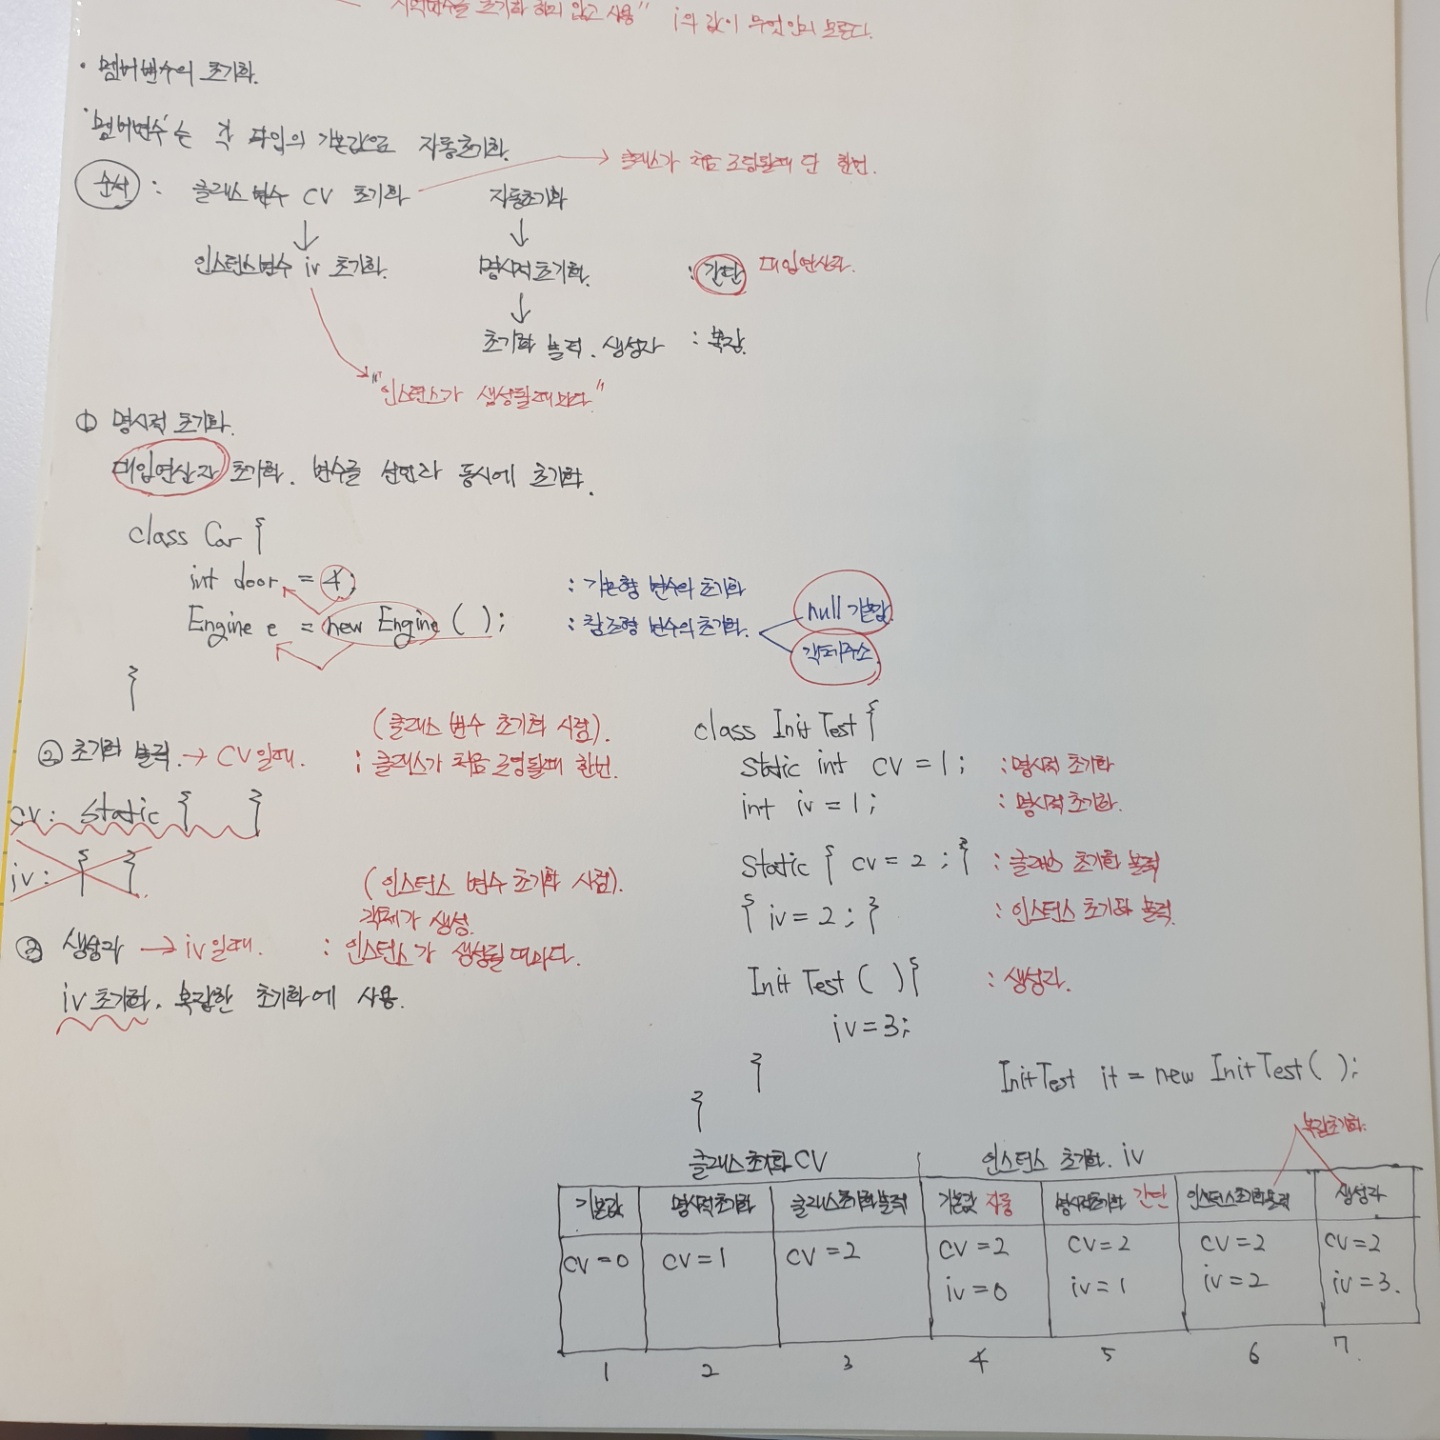 지역변수를 초기화 하지 않고 사용" i의 값이 무엇인지 모른다.
· 멤버변수의 초기화.
'멤버변수'는 각 타입의 기본값으로 자동초기화.
→ 클래스가 처음 로딩될때 단 한번.
순서 : 클래스 변수 CV 초기화 자동초기화
↓ ↓
인스턴스변수 iv 초기화. 명시적초기화. : 간단 대입연산자.
↓
초기화 블럭, 생성자 : 복잡.
"인스턴스가 생성될때마다"
① 명시적 초기화.
대입연산자 초기화. 변수를 선언과 동시에 초기화.
class Car {
int door = 4; : 기본형 변수의 초기화
Engine e = new Engine ( ); : 참조형 변수의 초기화. null 기본값
객체주소
}
(클래스 변수 초기화 시점).
② 초기화 블럭. → CV일때. : 클래스가 처음 로딩될때 한번.
cv: static { }
iv: { }
(인스턴스 변수 초기화 시점).
객체가 생성.
③ 생성자 → iv일때. : 인스턴스가 생성될때마다.
iv 초기화. 복잡한 초기화에 사용.
class InitTest {
static int cv = 1; : 명시적 초기화
int iv = 1; : 명시적 초기화.
static { cv = 2 ; } : 클래스 초기화 블럭
{ iv = 2 ; } : 인스턴스 초기화 블럭.
InitTest ( ) { : 생성자.
iv = 3;
}
InitTest it = new InitTest( );
}
복잡초기화.
클래스초기화 CV 인스턴스 초기화. iv
기본값 명시적초기화 클래스초기화블럭 기본값 자동 명시적초기화 간단 인스턴스초기화블럭 생성자
cv = 0 cv = 1 cv = 2 cv = 2 cv = 2 cv = 2 cv = 2
iv = 0 iv = 1 iv = 2 iv = 3.
1 2 3 4 5 6 7.